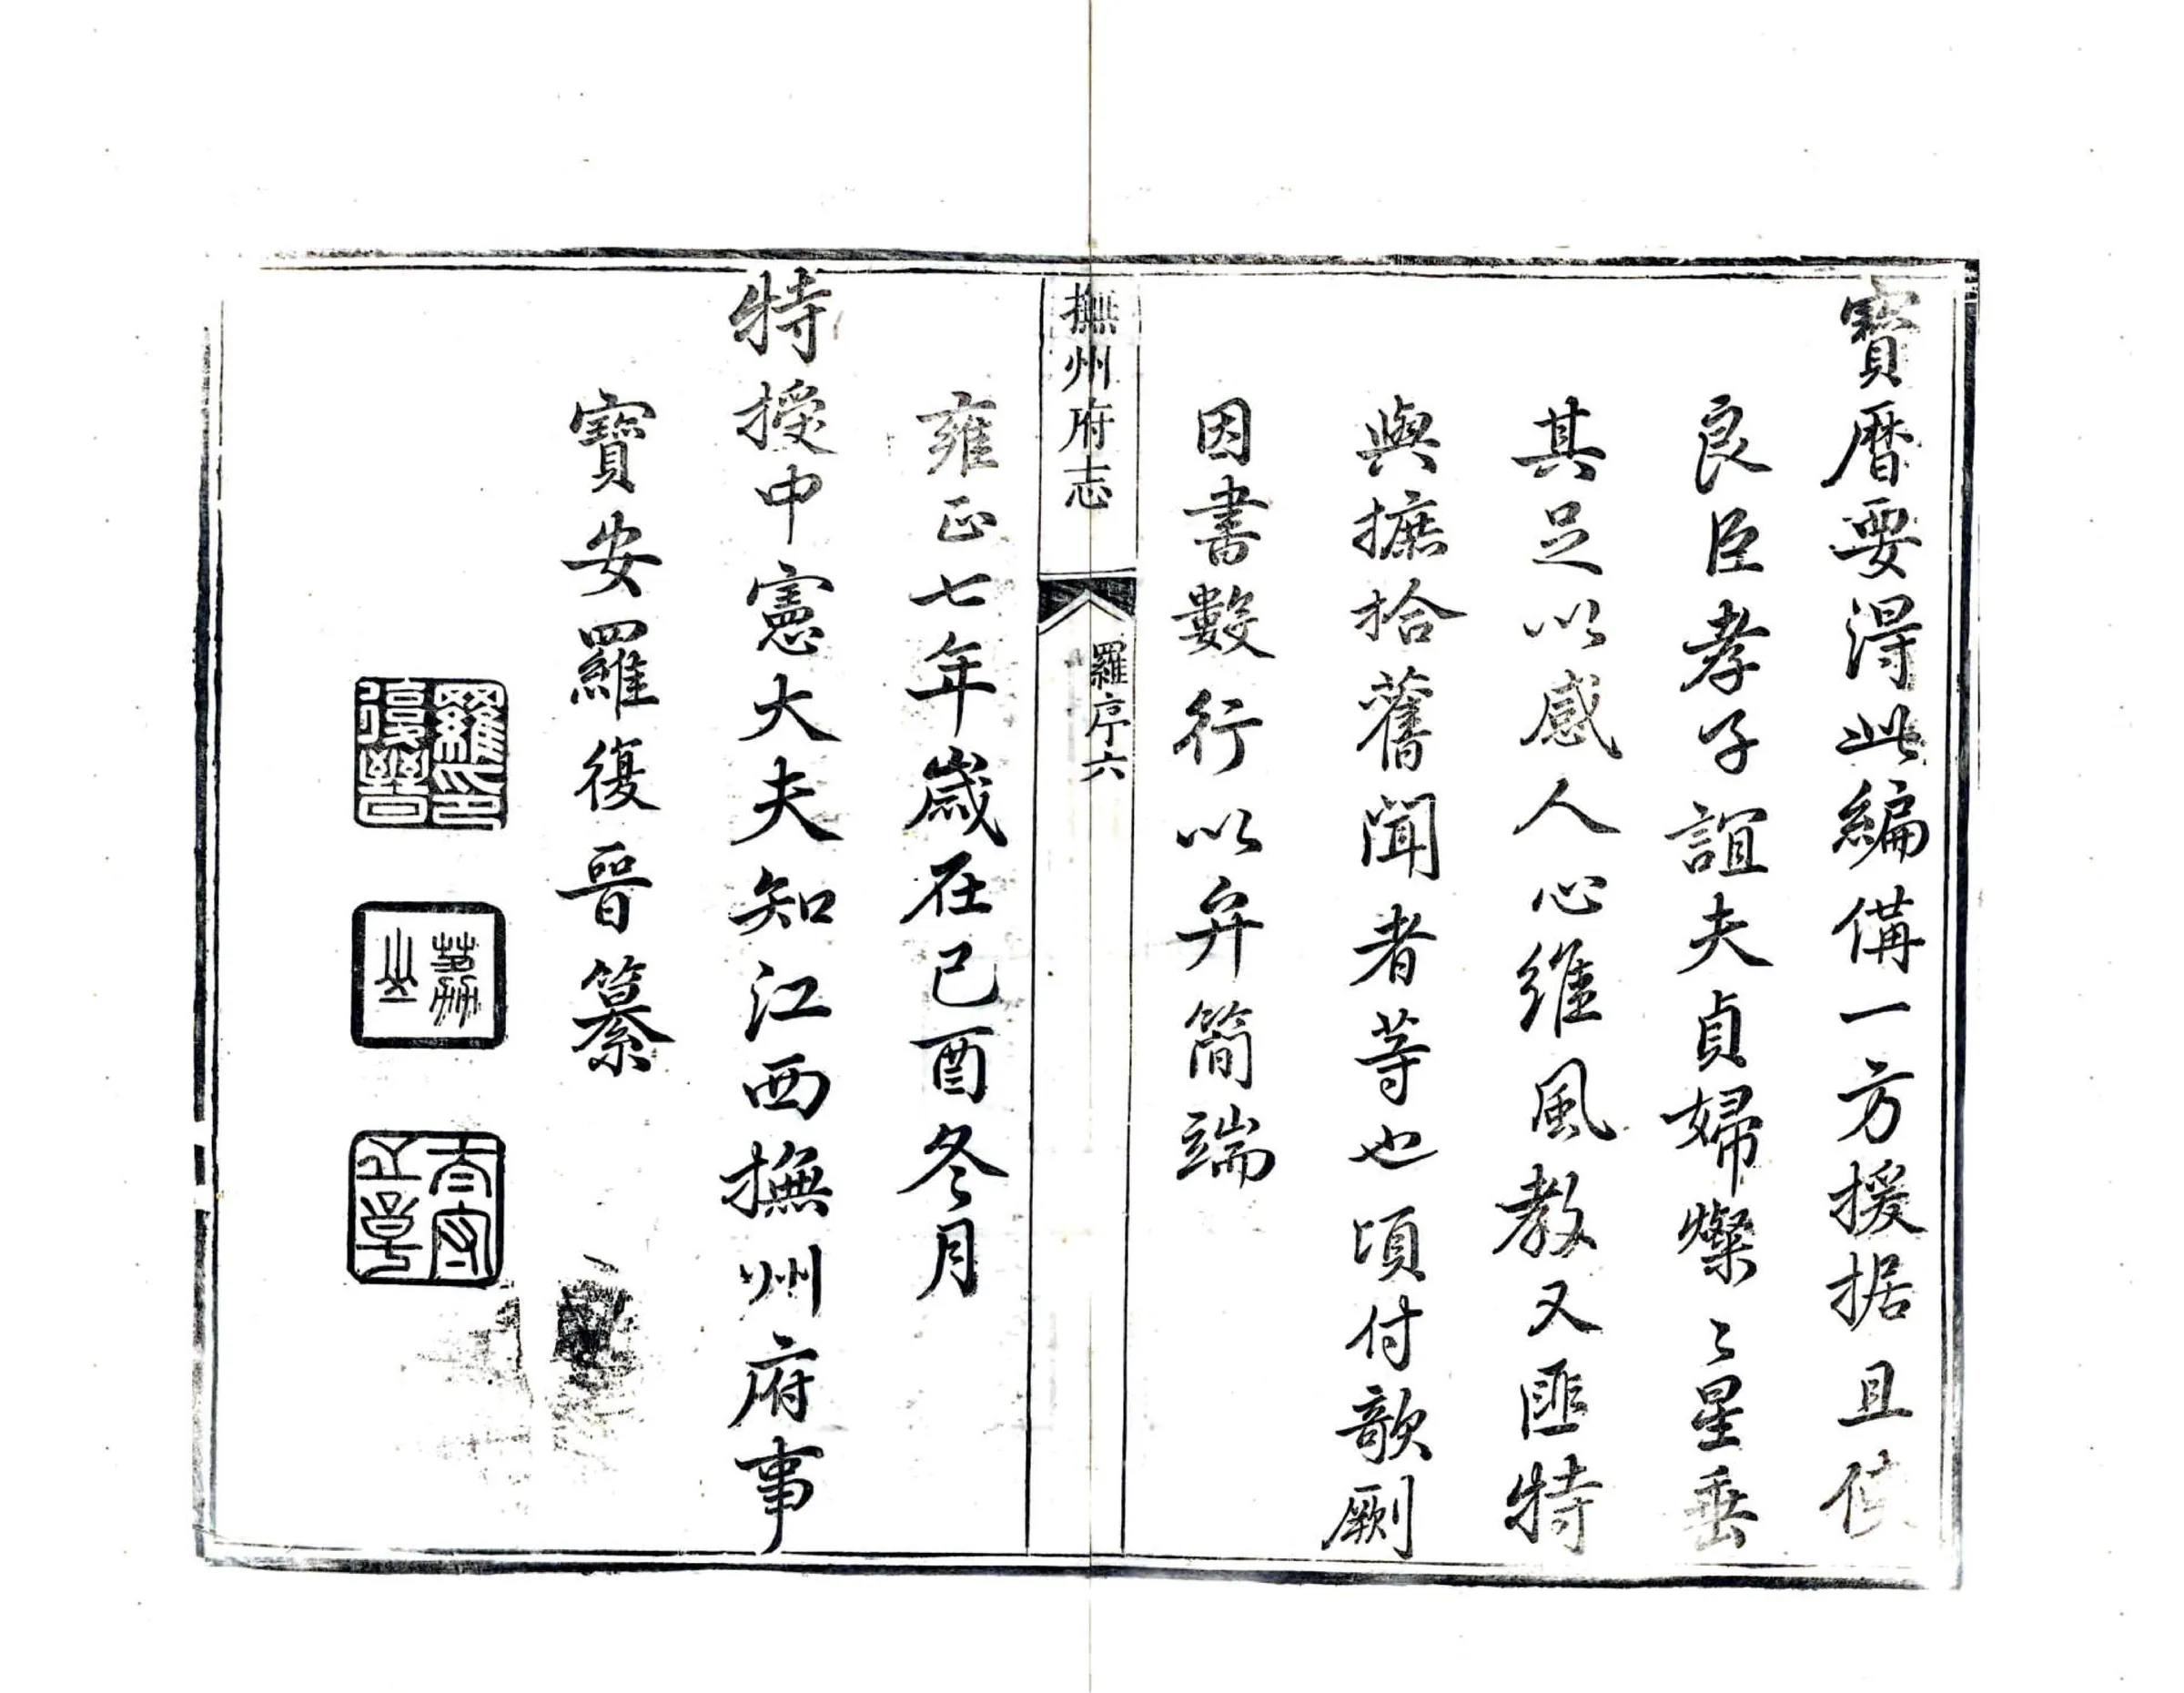 寶曆要得此編備一方援据且使
良臣孝子誼夫貞婦燦〻星垂
其足以感人心維風教又匪特
與摭拾舊聞者等也頃付欹劂
因書數行以弁簡端
撫州府志
羅序六
雍正七年歲在己酉冬月
特授中憲大夫知江西撫州府事
寶安羅復晉纂
羅復晉印